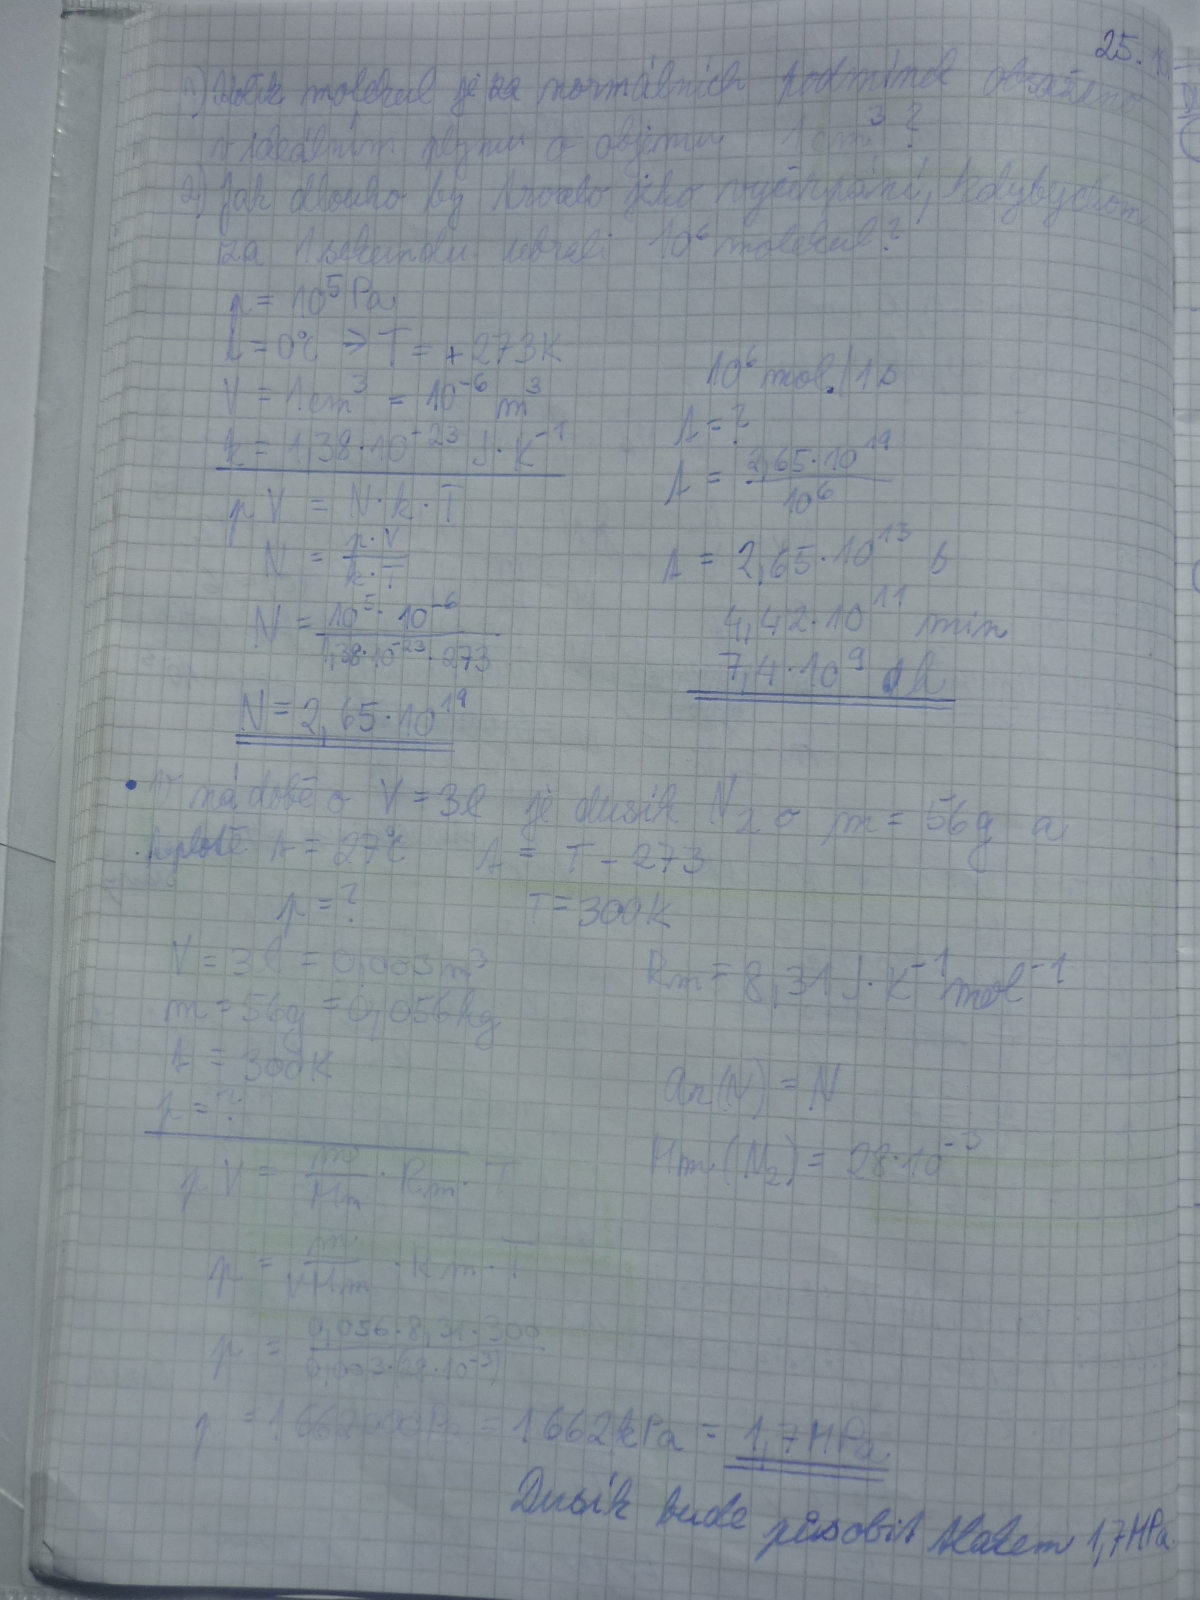 25.
1) Kolik molekul je za normálních podmínek obsaženo
v ideálním plynu o objemu 1 cm³?
2) Jak dlouho by trvalo jeho vyčerpání, kdybychom
za 1 sekundu ubrali 10⁶ molekul?
p = 10⁵ Pa
t = 0°C => T = + 273K
V = 1cm³ = 10⁻⁶ m³
k = 1,38·10⁻²³ J·K⁻¹
pV = N·k·T
N = p·V / k·T
N = 10⁵·10⁻⁶ / 1,38·10⁻²³·273
N = 2,65·10¹⁹
10⁶ mol./1s
t = ?
t = 2,65·10¹⁹ / 10⁶
t = 2,65·10¹³ s
4,42·10¹¹ min
7,4·10⁹ h
• V nádobě o V = 3l je dusík N₂ o m = 56g a
teplotě t = 27°C t = T - 273
p = ? T = 300K
V = 3l = 0,003m³
m = 56g = 0,056kg
t = 300K
p = ?
Rm = 8,31 J·K⁻¹mol⁻¹
Ar(N) = N
Mm(N₂) = 28·10⁻³
pV = m/Mm · Rm · T
p = m/VMm · Rm · T
p = 0,056·8,31·300 / 0,003·(28·10⁻³)
p = 1662000Pa = 1662kPa = 1,7MPa
Dusík bude působit tlakem 1,7MPa.